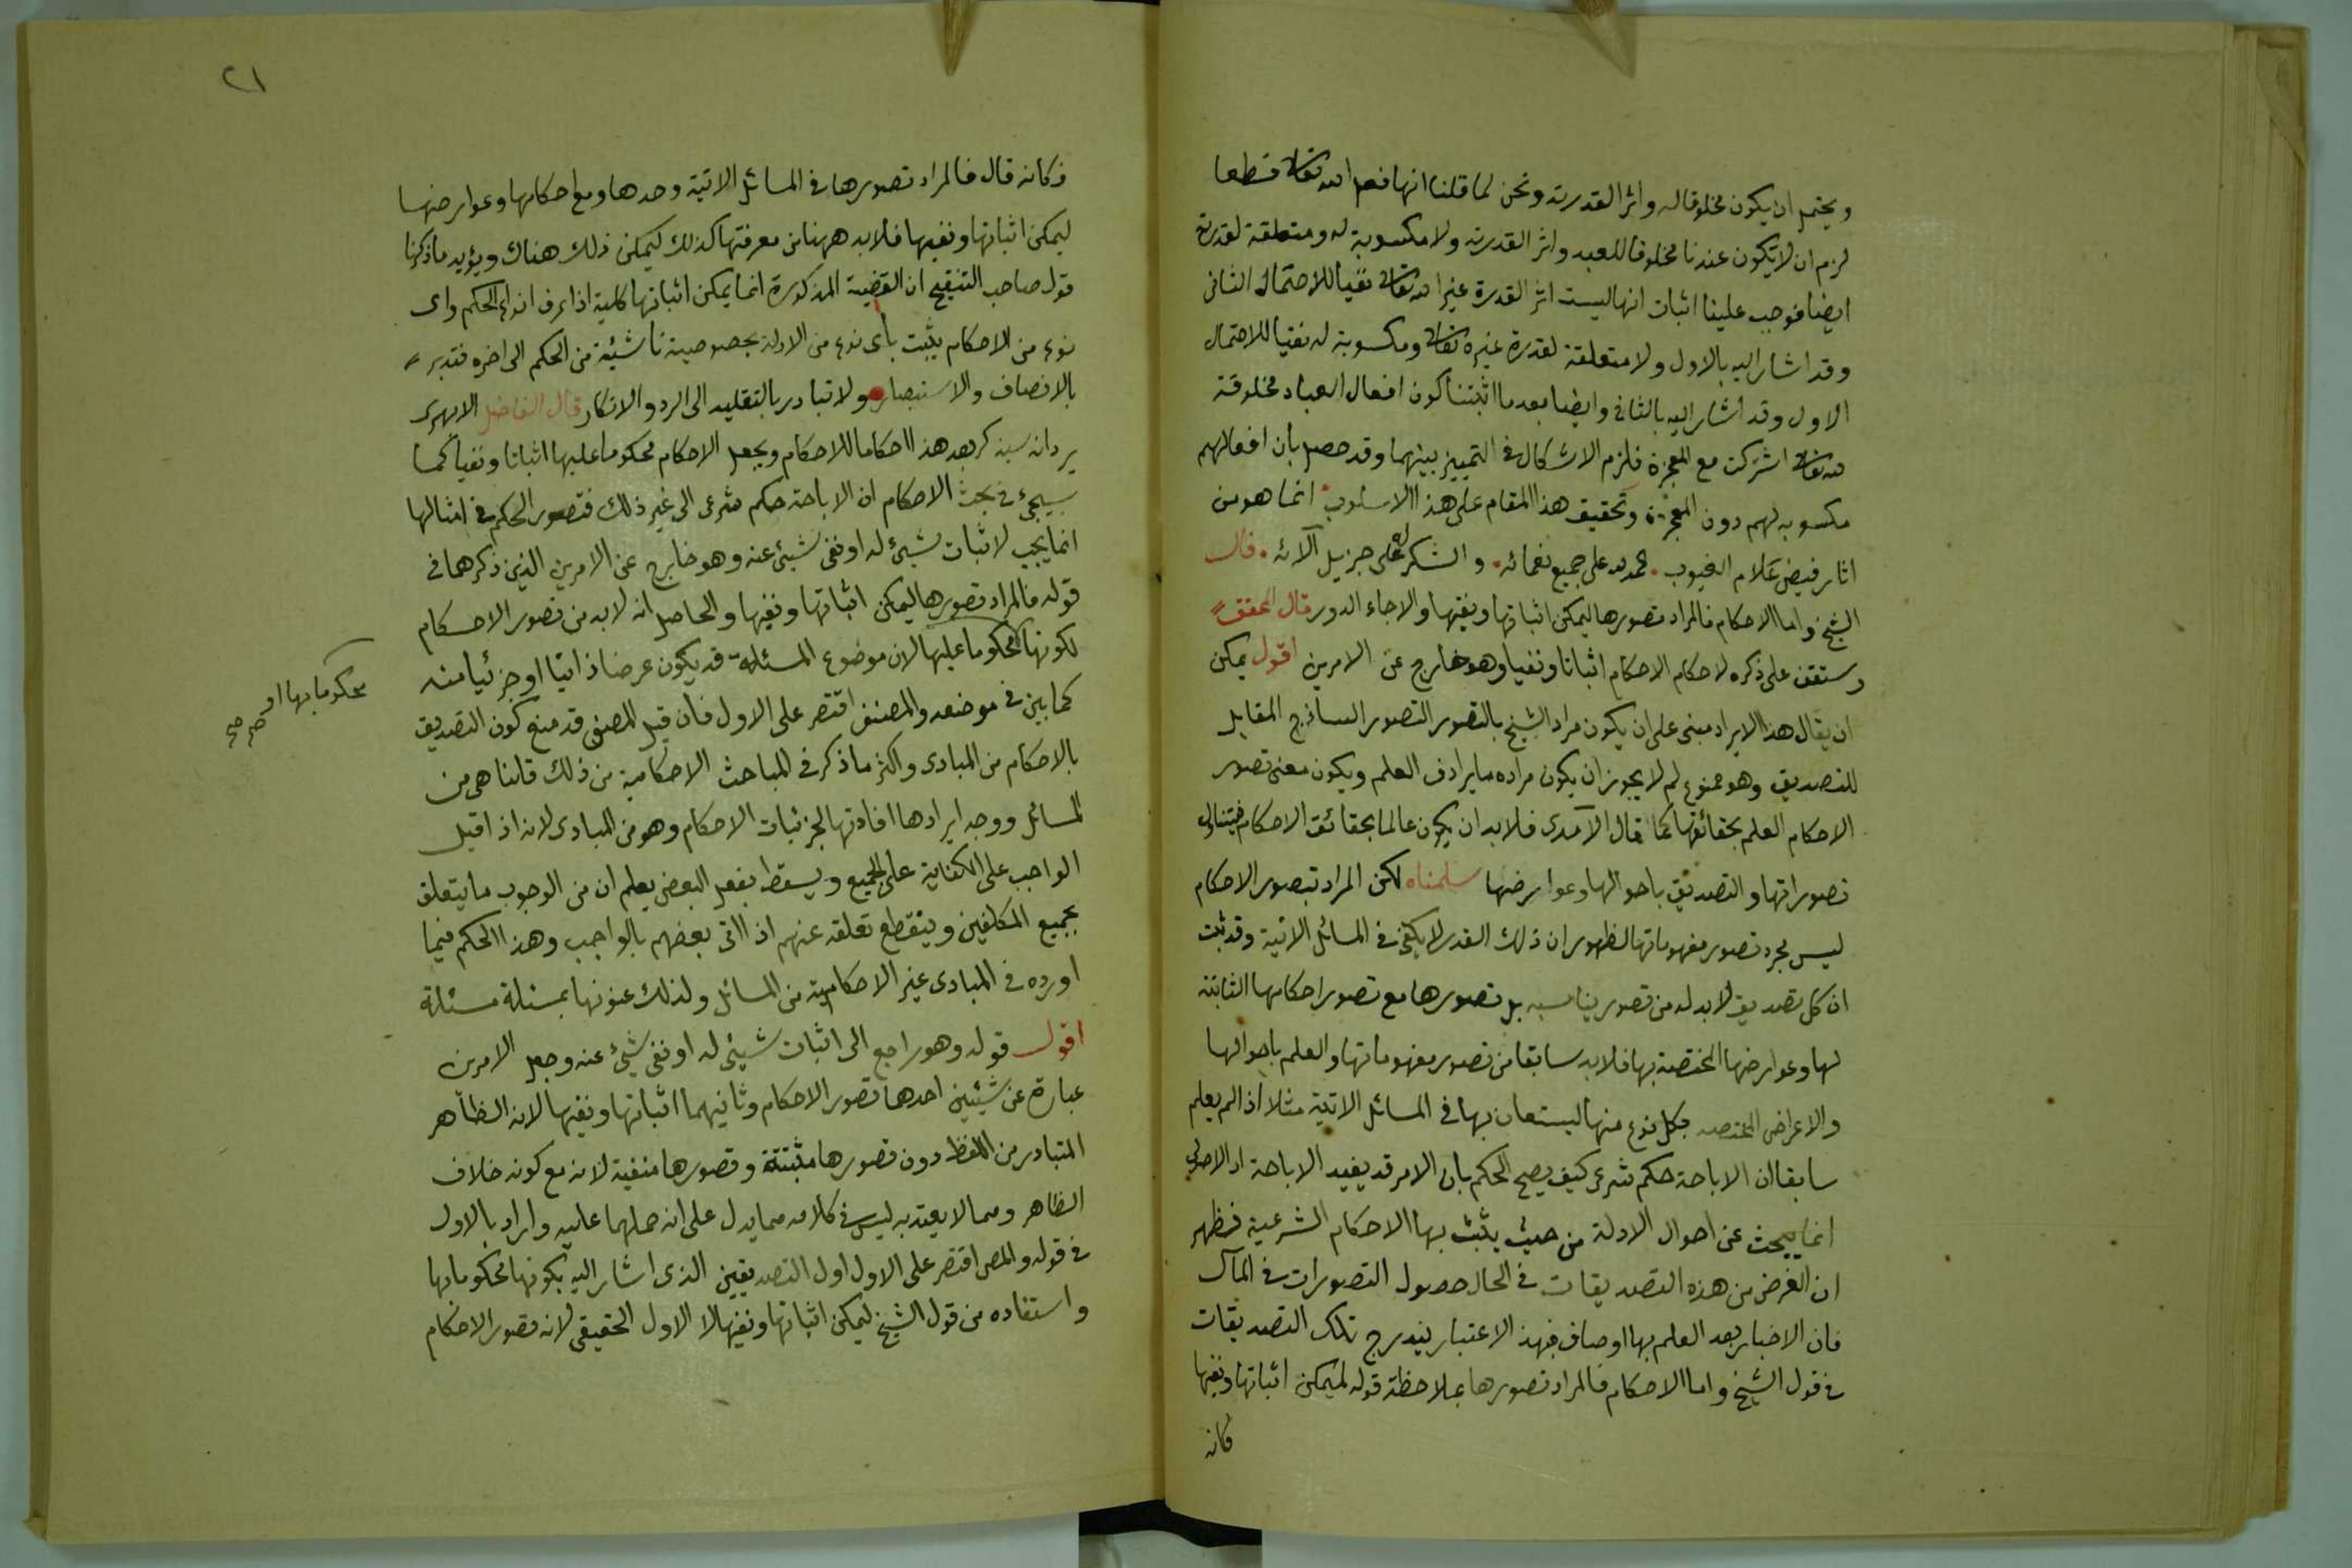 ويحتمل ان يكون مخلوقا له واثر القدرته ونحن لما قلنا انها فعل الله تعالى قطعا
لزم ان لا يكون عندنا مخلوقا للعبد واثر القدرته ولا مكسوبة له ومتعلقة لقدرته
ايضا فوجب علينا اثبات انها ليست اثر القدرة غير الله تعالى نفيا للاحتمال الثانى
وقد اشار اليه بالاول ولا متعلقة لقدرة غيره تعالى ومكسوبة له نفيا للاحتمال
الاول وقد اشار اليه بالثانى وايضا بعد ما اثبتنا كون افعال العباد مخلوقة
لله تعالى اشتركت مع المعجزة فلزم الاشكال فى التمييز بينهما وقد حصل بان افعالهم
مكسوبه لهم دون المعجزة وتحقيق هذا المقام على هذا الاسلوب انما هو من
اثار فيض علام الغيوب . حمد لله على جميع نعمائه . والشكر له على جزيل آلائه . قال
الشيخ واما الاحكام فالمراد تصورها ليمكن اثباتها ونفيها والا جاء الدور قال المحقق
وستقف على ذكره لاحكام الاحكام اثباتا ونفيا وهو خارج عن الامرين اقول يمكن
ان يقال هذا الايراد مبنى على ان يكون مراد الشيخ بالتصور التصور الساذج المقابل
للتصديق وهو ممنوع لم لا يجوز ان يكون مراده ما يرادف العلم ويكون معنى تصور
الاحكام العلم بحقائقها كما قال الآمدى فلابد ان يكون عالما بحقائق الاحكام فيتناول
تصوراتها والتصديق باحوالها وعوارضها سلمناه لكن المراد بتصور الاحكام
ليس مجرد تصور مفهوماتها لظهور ان ذلك القدر لا يكفى فى المسائل الاتية وقد ثبت
ان كل تصديق لابد له من تصور يناسبه بل تصورها مع تصور احكامها الثابتة
لها وعوارضها المختصة بها فلابد سابقا من تصور مفهوماتها والعلم باحوالها
والاعراض المختصه بكل نوع منها ليستعان بها فى المسائل الاتية مثلا اذا لم يعلم
سابقا ان الاباحة حكم شرعى كيف يصح الحكم بان الامر قد يفيد الاباحة اذ الاصولى
انما يبحث عن احوال الادلة من حيث يثبت بها الاحكام الشرعية فظهر
ان الغرض من هذه التصديقات فى الحال حصول التصورات فى المآل
فان الاخبار بعد العلم بها اوصاف فبهذ الاعتبار يندرج تلك التصديقات
فى قول الشيخ واما الاحكام فالمراد تصورها بملاحظة قوله ليمكن اثباتها ونفيها
فكانه
٢١
فكانه قال فالمراد تصورها فى المسائل الاتية وحدها ومع احكامها وعوارضها
ليمكن اثباتها ونفيها فلابد ههنا من معرفتها كذلك ليمكن ذلك هناك ويؤيد ما ذكرنا
قول صاحب التنقيح ان القضية المذكورة انما يمكن اثباتها كلية اذا عرف انواع الحكم واى
نوع من الاحكام يثبت بأى نوع من الادلة بخصوصية ناشئة من الحكم الى اخره فتدبر
بالانصاف والاستبصار ولا تبادر بالتقليد الى الرد والانكار قال الفاضل الابهرى
يرد انه سيذكر بعد هذا احكاما للاحكام ويجعل الاحكام محكوما عليها اثباتا ونفيا كما
سيجئ فى بحث الاحكام ان الاباحة حكم شرعى الى غير ذلك فتصور الحكم فى امثالها
انما يجب لاثبات شيئ له او نفى شيئ عنه وهو خارج عن الامرين الذين ذكرهما فى
قوله فالمراد تصورها ليمكن اثباتها ونفيها والحاصل انه لابد من تصور الاحكام
لكونها محكوما عليها لان موضوع المسئلة قد يكون عرضا ذاتيا او جزئيا منه
محكوما بها او صح صح
كما بين فى موضعه والمصنف اقتصر على الاول فان قيل المصنف قد منع كون التصديق
بالاحكام من المبادى واكثر ما ذكر فى المباحث الاحكامية من ذلك قلنا هى من
المسائل ووجه ايرادها افادتها لجزئيات الاحكام وهو من المبادى لانه اذا قيل
الواجب على الكفاية على الجميع ويسقط بفعل البعض يعلم ان من الوجوب ما يتعلق
بجميع المكلفين وينقطع تعلقه عنهم اذا اتى بعضهم بالواجب وهذا الحكم فيما
اورده فى المبادى غير الاحكامية من المسائل ولذلك عنونها بمسئلة مسئلة
اقول قوله وهو راجع الى اثبات شيئ له او نفى شيئ عنه وجعل الامرين
عبارة عن شيئين احدهما تصور الاحكام وثانيهما اثباتها ونفيها لانه الظاهر
المتبادر من اللفظ دون تصورها مثبتة وتصورها منفية لانه مع كونه خلاف
الظاهر ومما لا يعتد به ليس فى كلامه مما يدل على انه حملهما عليه واراد بالاول
فى قوله والمص اقتصر على الاول اول التصديقين الذى اشار اليه بكونها محكوما بها
واستفاده من قول الشيخ ليمكن اثباتها ونفيها لا الاول الحقيقى لانه تصور الاحكام